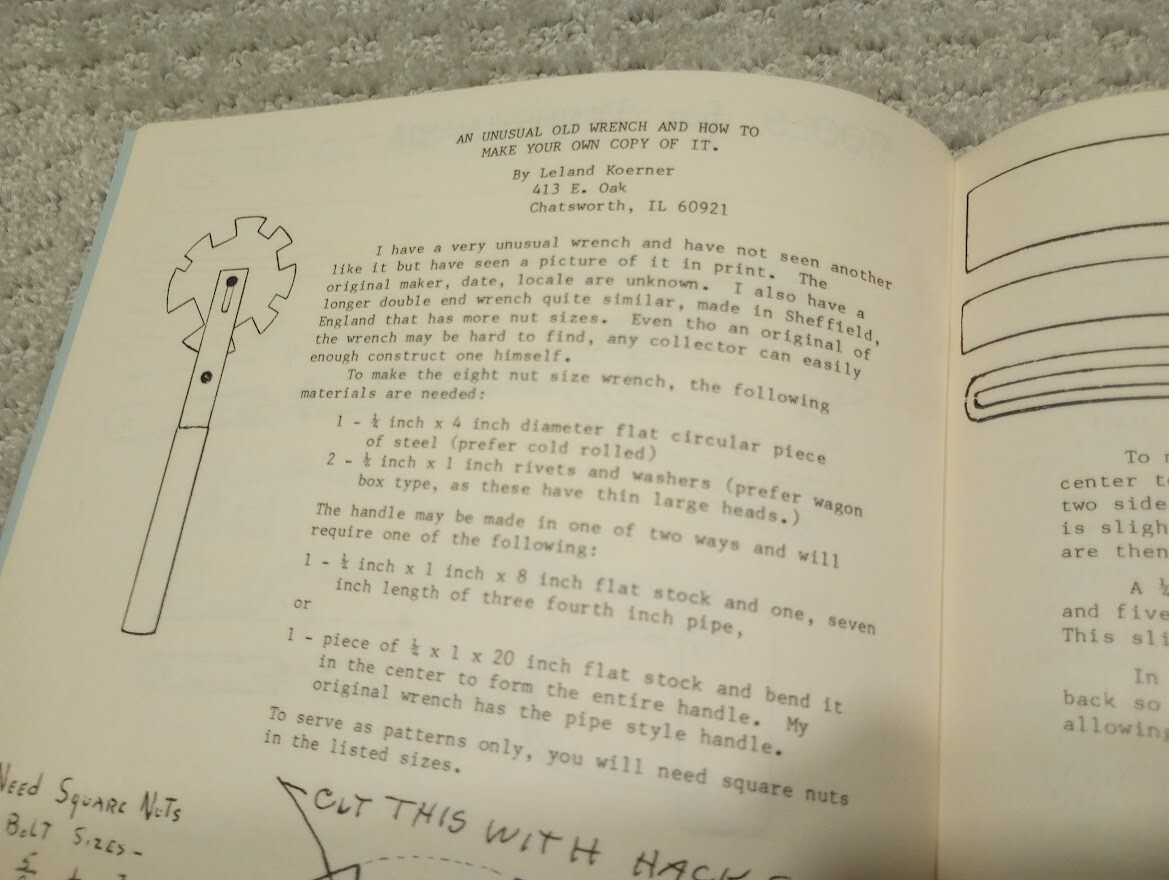 AN UNUSUAL OLD WRENCH AND HOW TO
MAKE YOUR OWN COPY OF IT.
By Leland Koerner
413 E. Oak
Chatsworth, IL 60921
I have a very unusual wrench and have not seen another
like it but have seen a picture of it in print. The
original maker, date, locale are unknown. I also have a
longer double end wrench quite similar, made in Sheffield,
England that has more nut sizes. Even tho an original of
the wrench may be hard to find, any collector can easily
enough construct one himself.
To make the eight nut size wrench, the following
materials are needed:
1 - ¼ inch x 4 inch diameter flat circular piece
of steel (prefer cold rolled)
2 - ¼ inch x 1 inch rivets and washers (prefer wagon
box type, as these have thin large heads.)
The handle may be made in one of two ways and will
require one of the following:
1 - ¼ inch x 1 inch x 8 inch flat stock and one, seven
inch length of three fourth inch pipe,
or
1 - piece of ¼ x 1 x 20 inch flat stock and bend it
in the center to form the entire handle. My
original wrench has the pipe style handle.
To serve as patterns only, you will need square nuts
in the listed sizes.
NEED SQUARE NUTS
BOLT SIZES -
CUT THIS WITH HACK
To
center
two side
is
are then
A
and five
This
In
back so